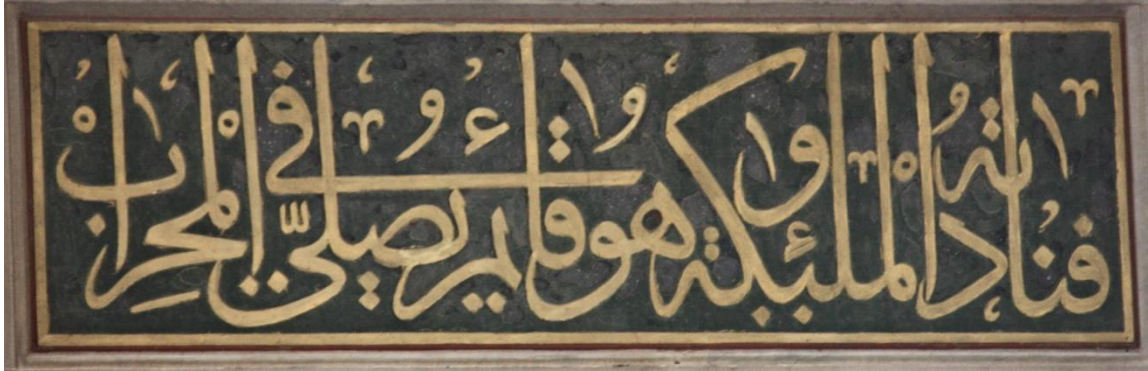 فنادته الملئكة وهو قائم يصلي في المحراب